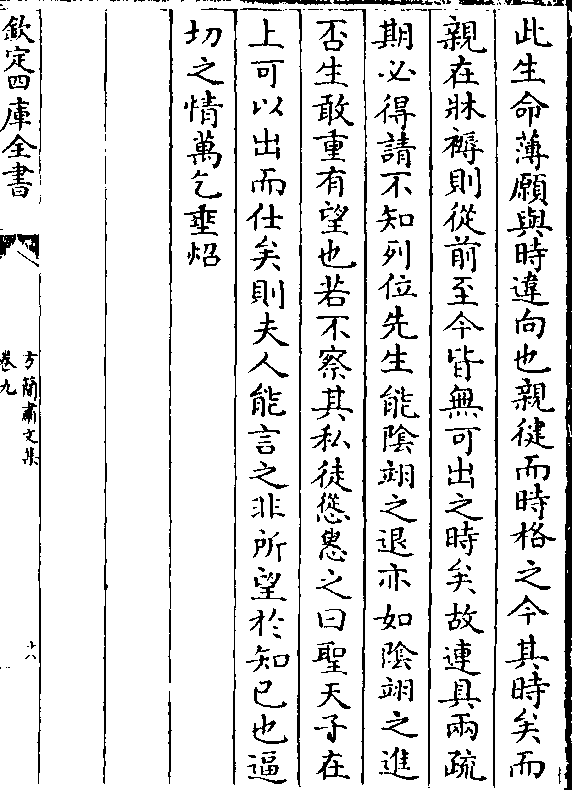 此生命薄願與時違向也親健而時格之今其時矣而
親在牀褥則從前至今皆無可出之時矣故連具兩疏
期必得請不知列位先生能陰翊之退亦如陰翊之進
否生敢重有望也若不察其私徒慫恿之曰聖天子在
上可以出而仕矣則夫人能言之非所望於知已也逼
切之情萬乞垂炤
欽定四庫全書
方簡肅文集
卷九
十八